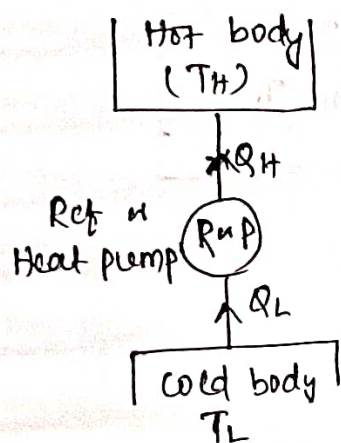 Hot body
(TH)
QH
Ref or
Heat pump
R or P
QL
Cold body
TL